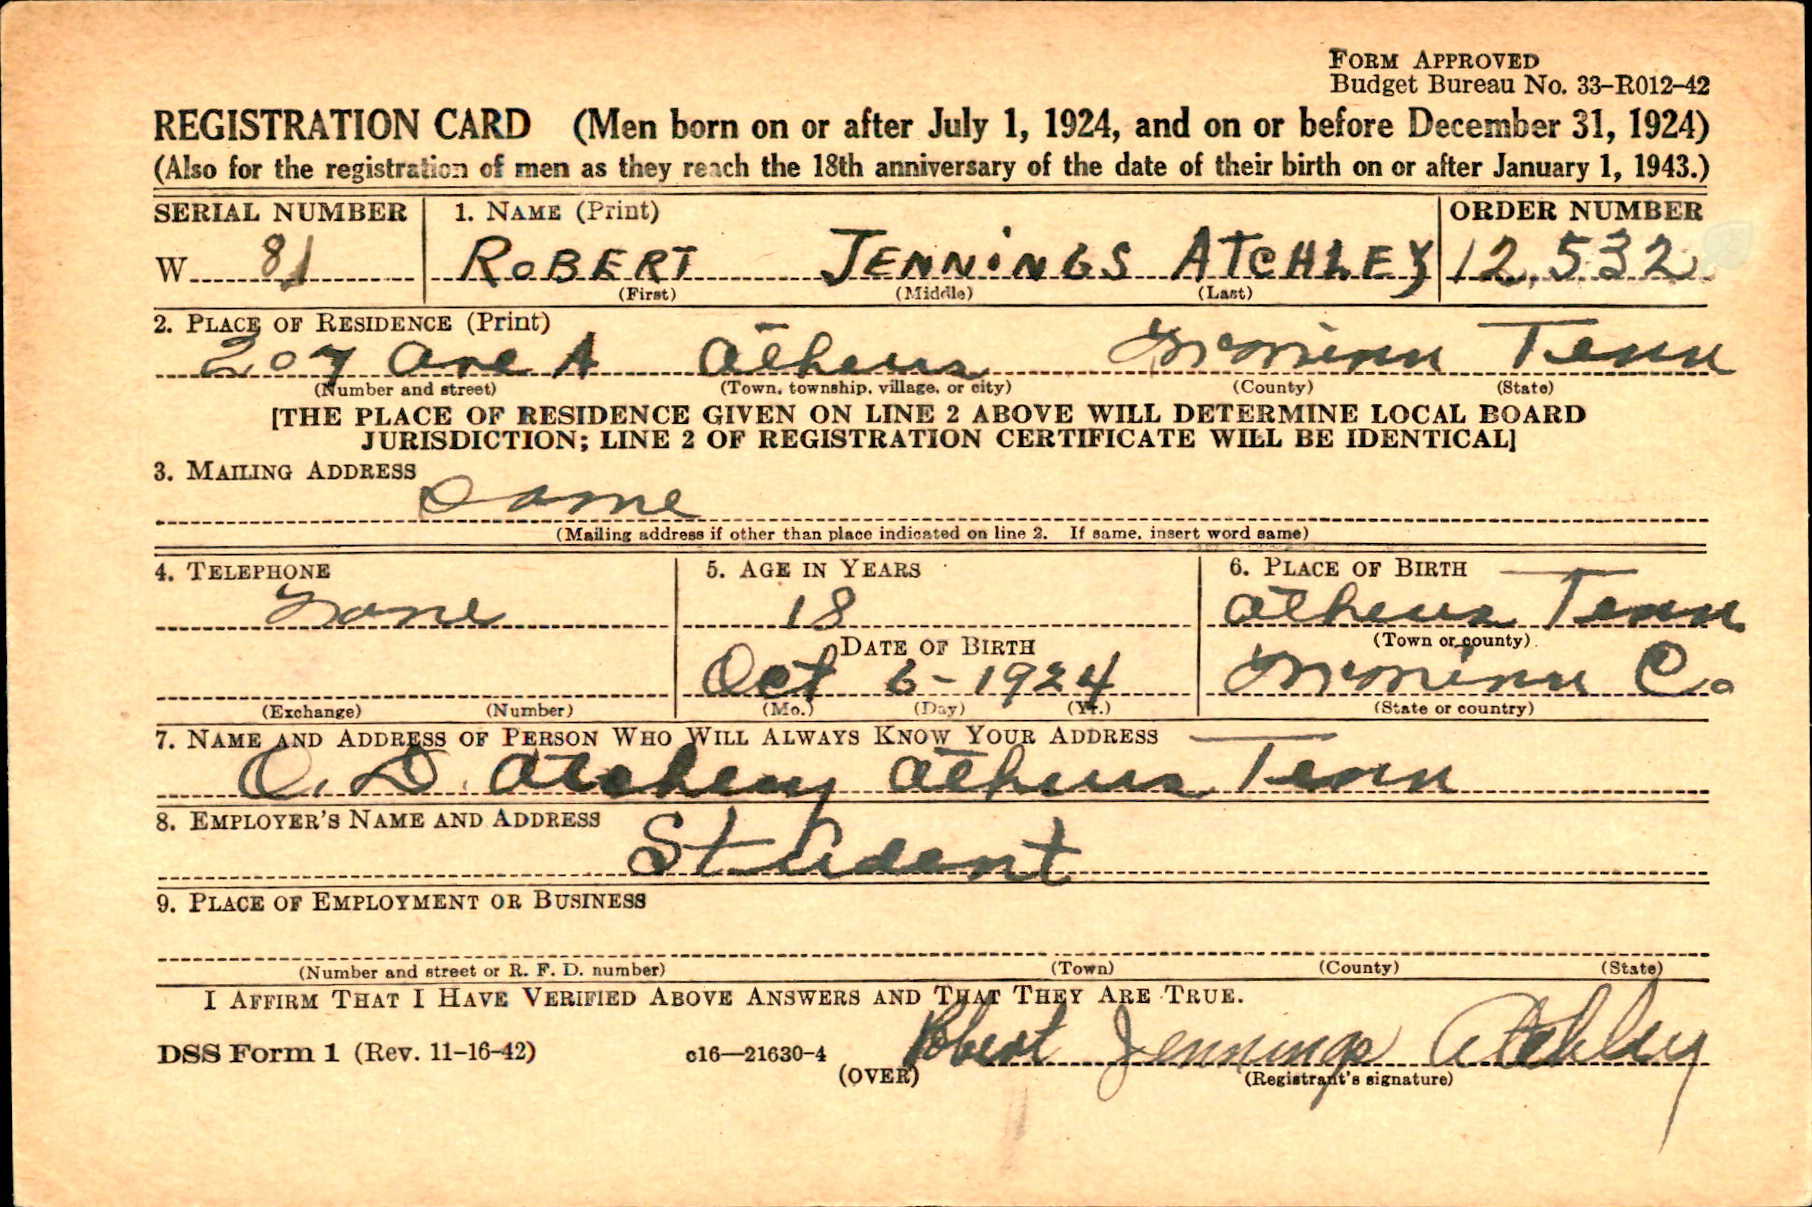 FORM APPROVED
Budget Bureau No. 33-R012-42
REGISTRATION CARD (Men born on or after July 1, 1924, and on or before December 31, 1924)
(Also for the registration of men as they reach the 18th anniversary of the date of their birth on or after January 1, 1943.)
SERIAL NUMBER 1. NAME (Print) ORDER NUMBER
W 81 ROBERT JENNINGS ATCHLEY 12,532
(First) (Middle) (Last)
2. PLACE OF RESIDENCE (Print)
207 Ave A Athens McMinn Tenn
(Number and street) (Town, township, village, or city) (County) (State)
[THE PLACE OF RESIDENCE GIVEN ON LINE 2 ABOVE WILL DETERMINE LOCAL BOARD
JURISDICTION; LINE 2 OF REGISTRATION CERTIFICATE WILL BE IDENTICAL]
3. MAILING ADDRESS
Same
(Mailing address if other than place indicated on line 2. If same, insert word same)
4. TELEPHONE 5. AGE IN YEARS 6. PLACE OF BIRTH
None 18 Athens Tenn
DATE OF BIRTH (Town or county)
Oct 6-1924 McMinn Co
(Exchange) (Number) (Mo.) (Day) (Yr.) (State or country)
7. NAME AND ADDRESS OF PERSON WHO WILL ALWAYS KNOW YOUR ADDRESS
O. D. Atchley Athens Tenn
8. EMPLOYER'S NAME AND ADDRESS
Student
9. PLACE OF EMPLOYMENT OR BUSINESS
(Number and street or R. F. D. number) (Town) (County) (State)
I AFFIRM THAT I HAVE VERIFIED ABOVE ANSWERS AND THAT THEY ARE TRUE.
DSS Form 1 (Rev. 11-16-42) c16—21630-4 Robert Jennings Atchley
(OVER) (Registrant's signature)